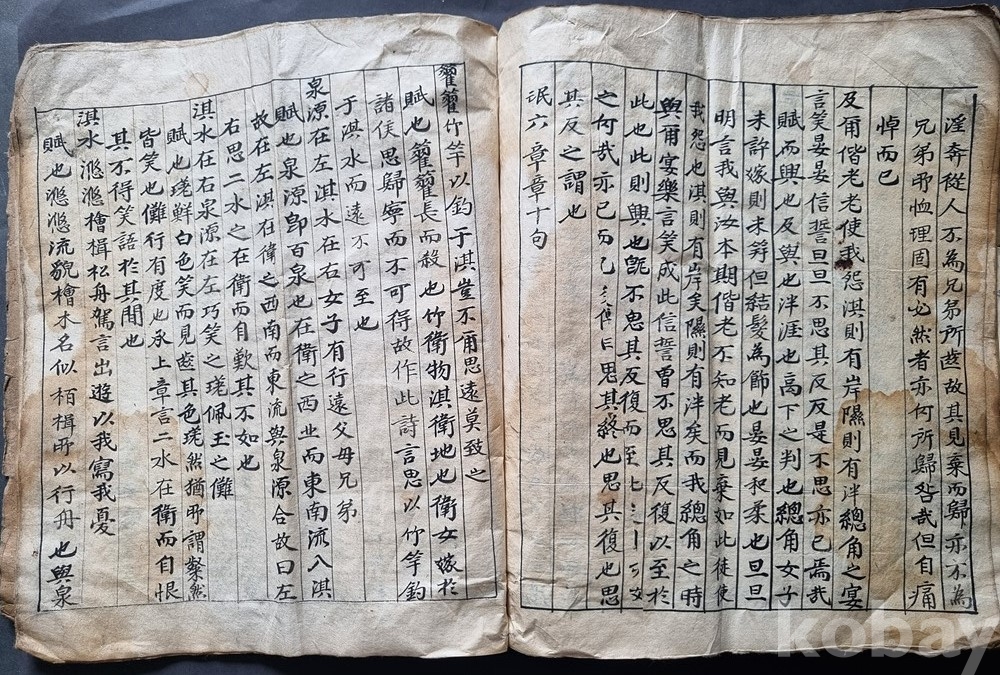 淫奔從人不為兄弟所齒故其見棄而歸亦不為
兄弟所恤理固有必然者亦何所歸咎哉但自痛
悼而已
及爾偕老老使我怨淇則有岸隰則有泮總角之宴
言笑晏晏信誓旦旦不思其反反是不思亦已焉哉
賦而興也及與也泮涯也高下之判也總角女子
未許嫁則未笄但結髮為飾也晏晏和柔也旦旦
明言我與汝本期偕老不知老而見棄如此徒使
我怨也淇則有岸矣隰則有泮矣而我總角之時
與爾宴樂言笑成此信誓曾不思其反復以至於
此也此則興也旣不思其反復而至
之何哉亦已而已 曰思其終也思其復也思
其反之謂也
氓六章章十句
籊籊竹竿以釣于淇豈不爾思遠莫致之
賦也籊籊長而殺也竹衛物淇衛地也衛女嫁於
諸侯思歸寧而不可得故作此詩言思以竹竿釣
于淇水而遠不可至也
泉源在左淇水在右女子有行遠父母兄弟
賦也泉源卽百泉也在衛之西北而東南流入淇
故在左淇在衛之西南而東流與泉源合故曰左
右思二水之在衛而自歎其不如也
淇水在右泉源在左巧笑之瑳佩玉之儺
賦也瑳鮮白色笑而見齒其色瑳然猶所謂粲然
皆笑也儺行有度也承上章言二水在衛而自恨
其不得笑語於其間也
淇水滺滺檜楫松舟駕言出遊以我寫我憂
賦也滺滺流貌檜木名似栢楫所以行舟也與泉
kobay